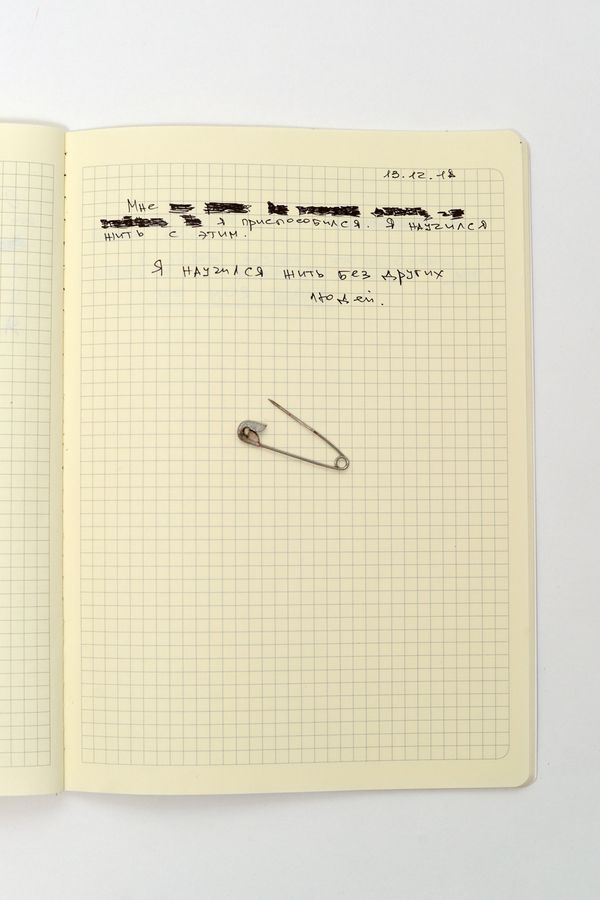 13.12.18
Мне
я приспособился. Я научился
жить с этим.
Я научился жить без других
людей.